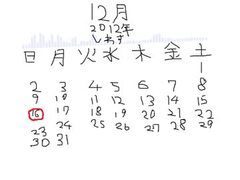 12月
2012年
しわす
日 月 火 水 木 金 土
1
2 3 4 5 6 7 8
9 10 11 12 13 14 15
16 17 18 19 20 21 22
23 24 25 26 27 28 29
30 31